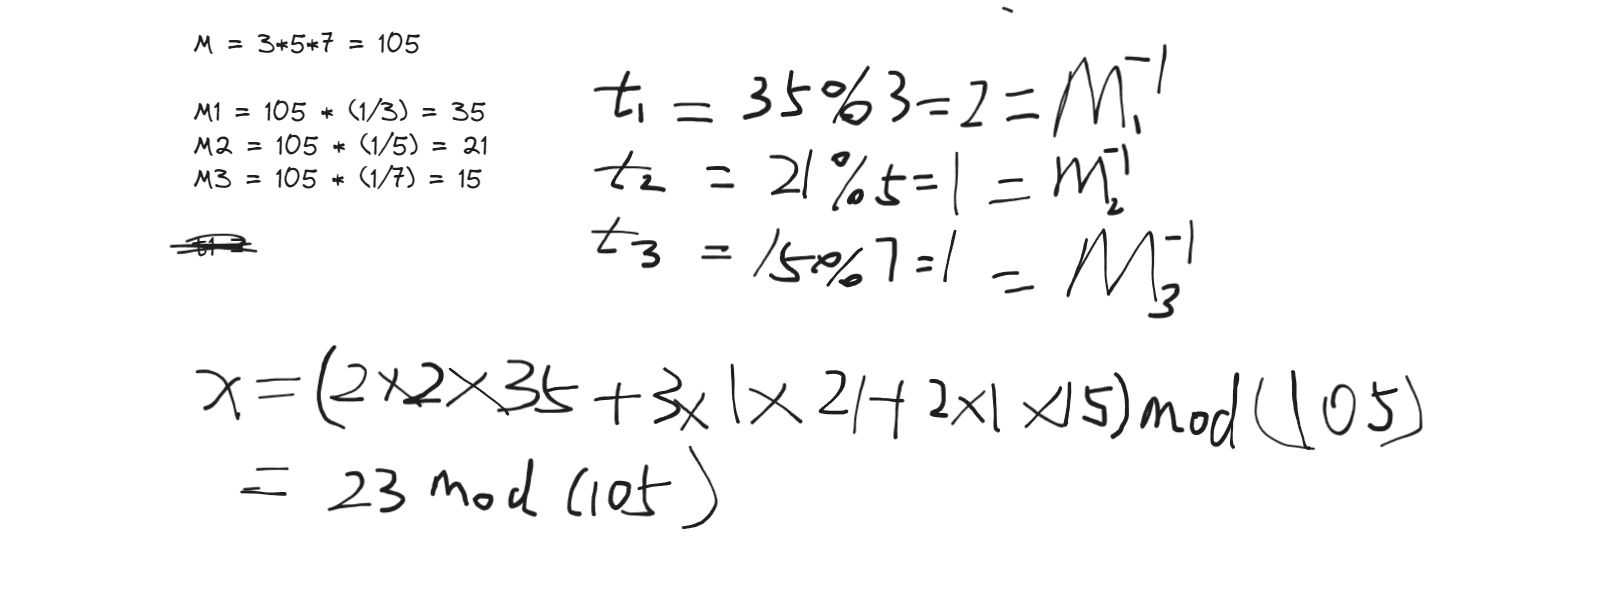 M = 3*5*7 = 105
M1 = 105 * (1/3) = 35
M2 = 105 * (1/5) = 21
M3 = 105 * (1/7) = 15
t1 =
t₁ = 35%3=2 = M₁⁻¹
t₂ = 21%5=1 = M₂⁻¹
t₃ = 15%7=1 = M₃⁻¹
x=(2×2×35+3×1×21+2×1×15)mod(105)
= 23 mod (105)